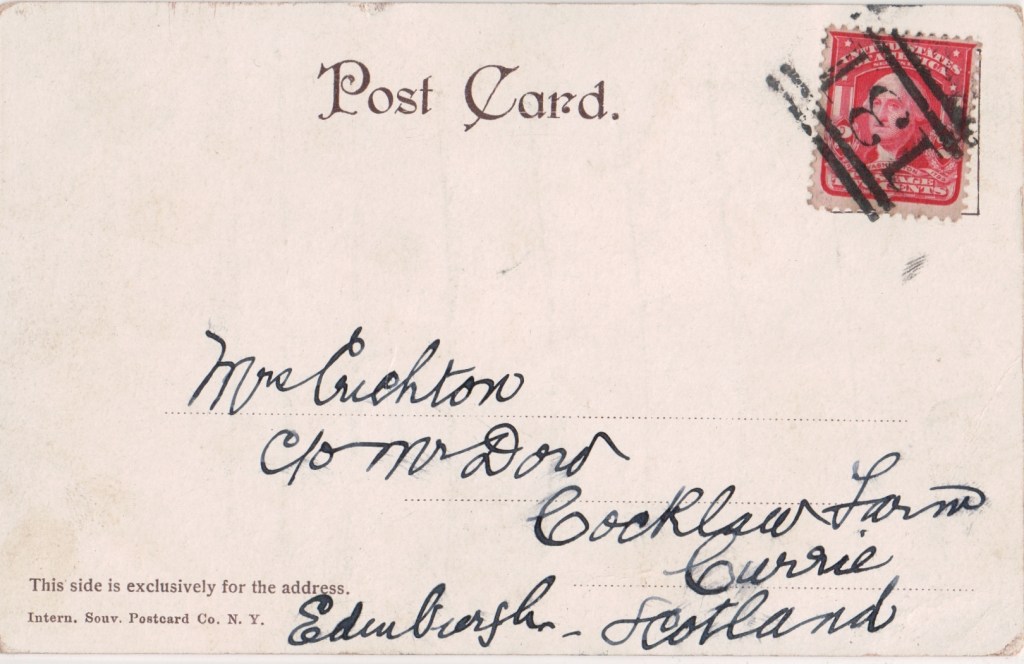 Post Card.
UNITED STATES
OF AMERICA
2
TWO CENTS
31
Mrs Crichton
c/o Mr Dow
Cocklaw Farm
Currie
Edinburgh - Scotland
This side is exclusively for the address.
Intern. Souv. Postcard Co. N. Y.